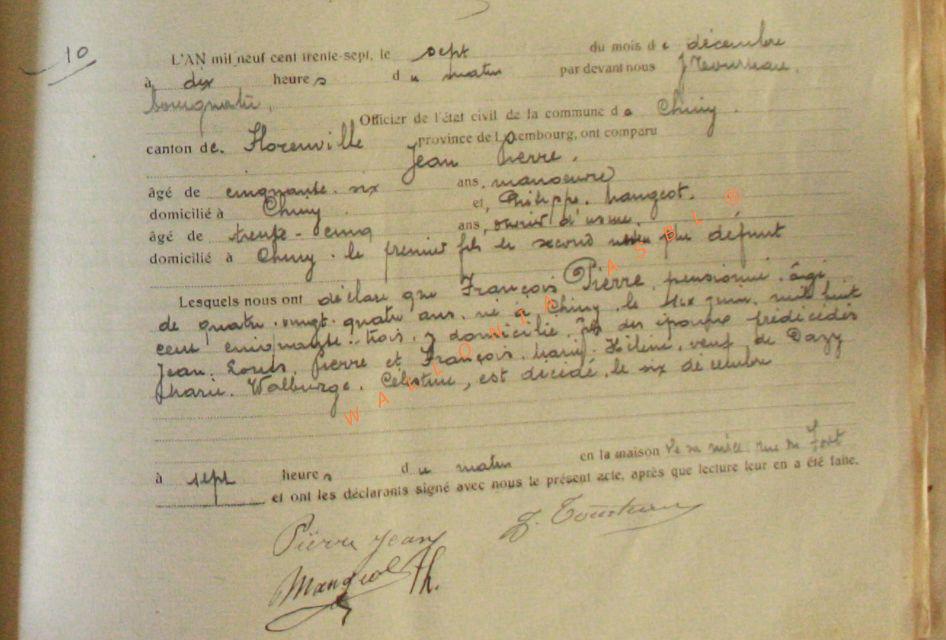 10
L'AN mil neuf cent trente-sept, le sept du mois de décembre
à dix heures du matin par devant nous J Tourteau,
bourgmestre,
Officier de l'état civil de la commune de Chiny.
canton de Florenville province de Luxembourg, ont comparu
Jean Pierre,
âgé de cinquante-six ans, manoeuvre
domicilié à Chiny et, Philippe Mangeot.
âgé de trente-cinq ans, ouvrier d'usine,
domicilié à Chiny. le premier fils le second neveu du défunt
Lesquels nous ont déclaré que François Pierre, pensionné, âgé
de quatre-vingt-quatre ans, né à Chiny, le dix juin, mil huit
cent cinquante-trois, y domicilié, fils des époux prédécédés
Jean. Louis. Pierre et François. Marie. Hélène, veuf de Dazy
Marie. Walburge. Célestine, est décédé, le six décembre
à sept heures du matin en la maison rue du Fort
et ont les déclarants signé avec nous le présent acte, après que lecture leur en a été faite.
Pierre Jean
Mangeot Ph.
WALLONIA ASBL ©